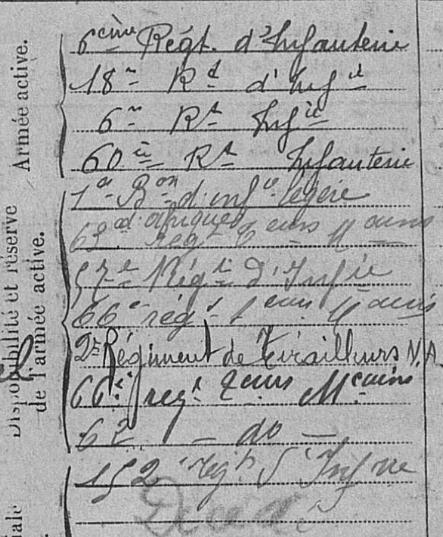 Armée active.
Disponibilité et réserve
de l'armée active.
6ème Régt. d'Infanterie
18e Rt d'Infie
6e Rt Infie
60e Rt Infanterie
1er Bon d'infie légère
d'afrique
régt Teurs Mains
57e Régt d'Infie
66e régt Teurs Mains
2e Régiment de Tirailleurs N.A.
66e regt Teurs Mcains
62 - do -
152 regt d'Infrie